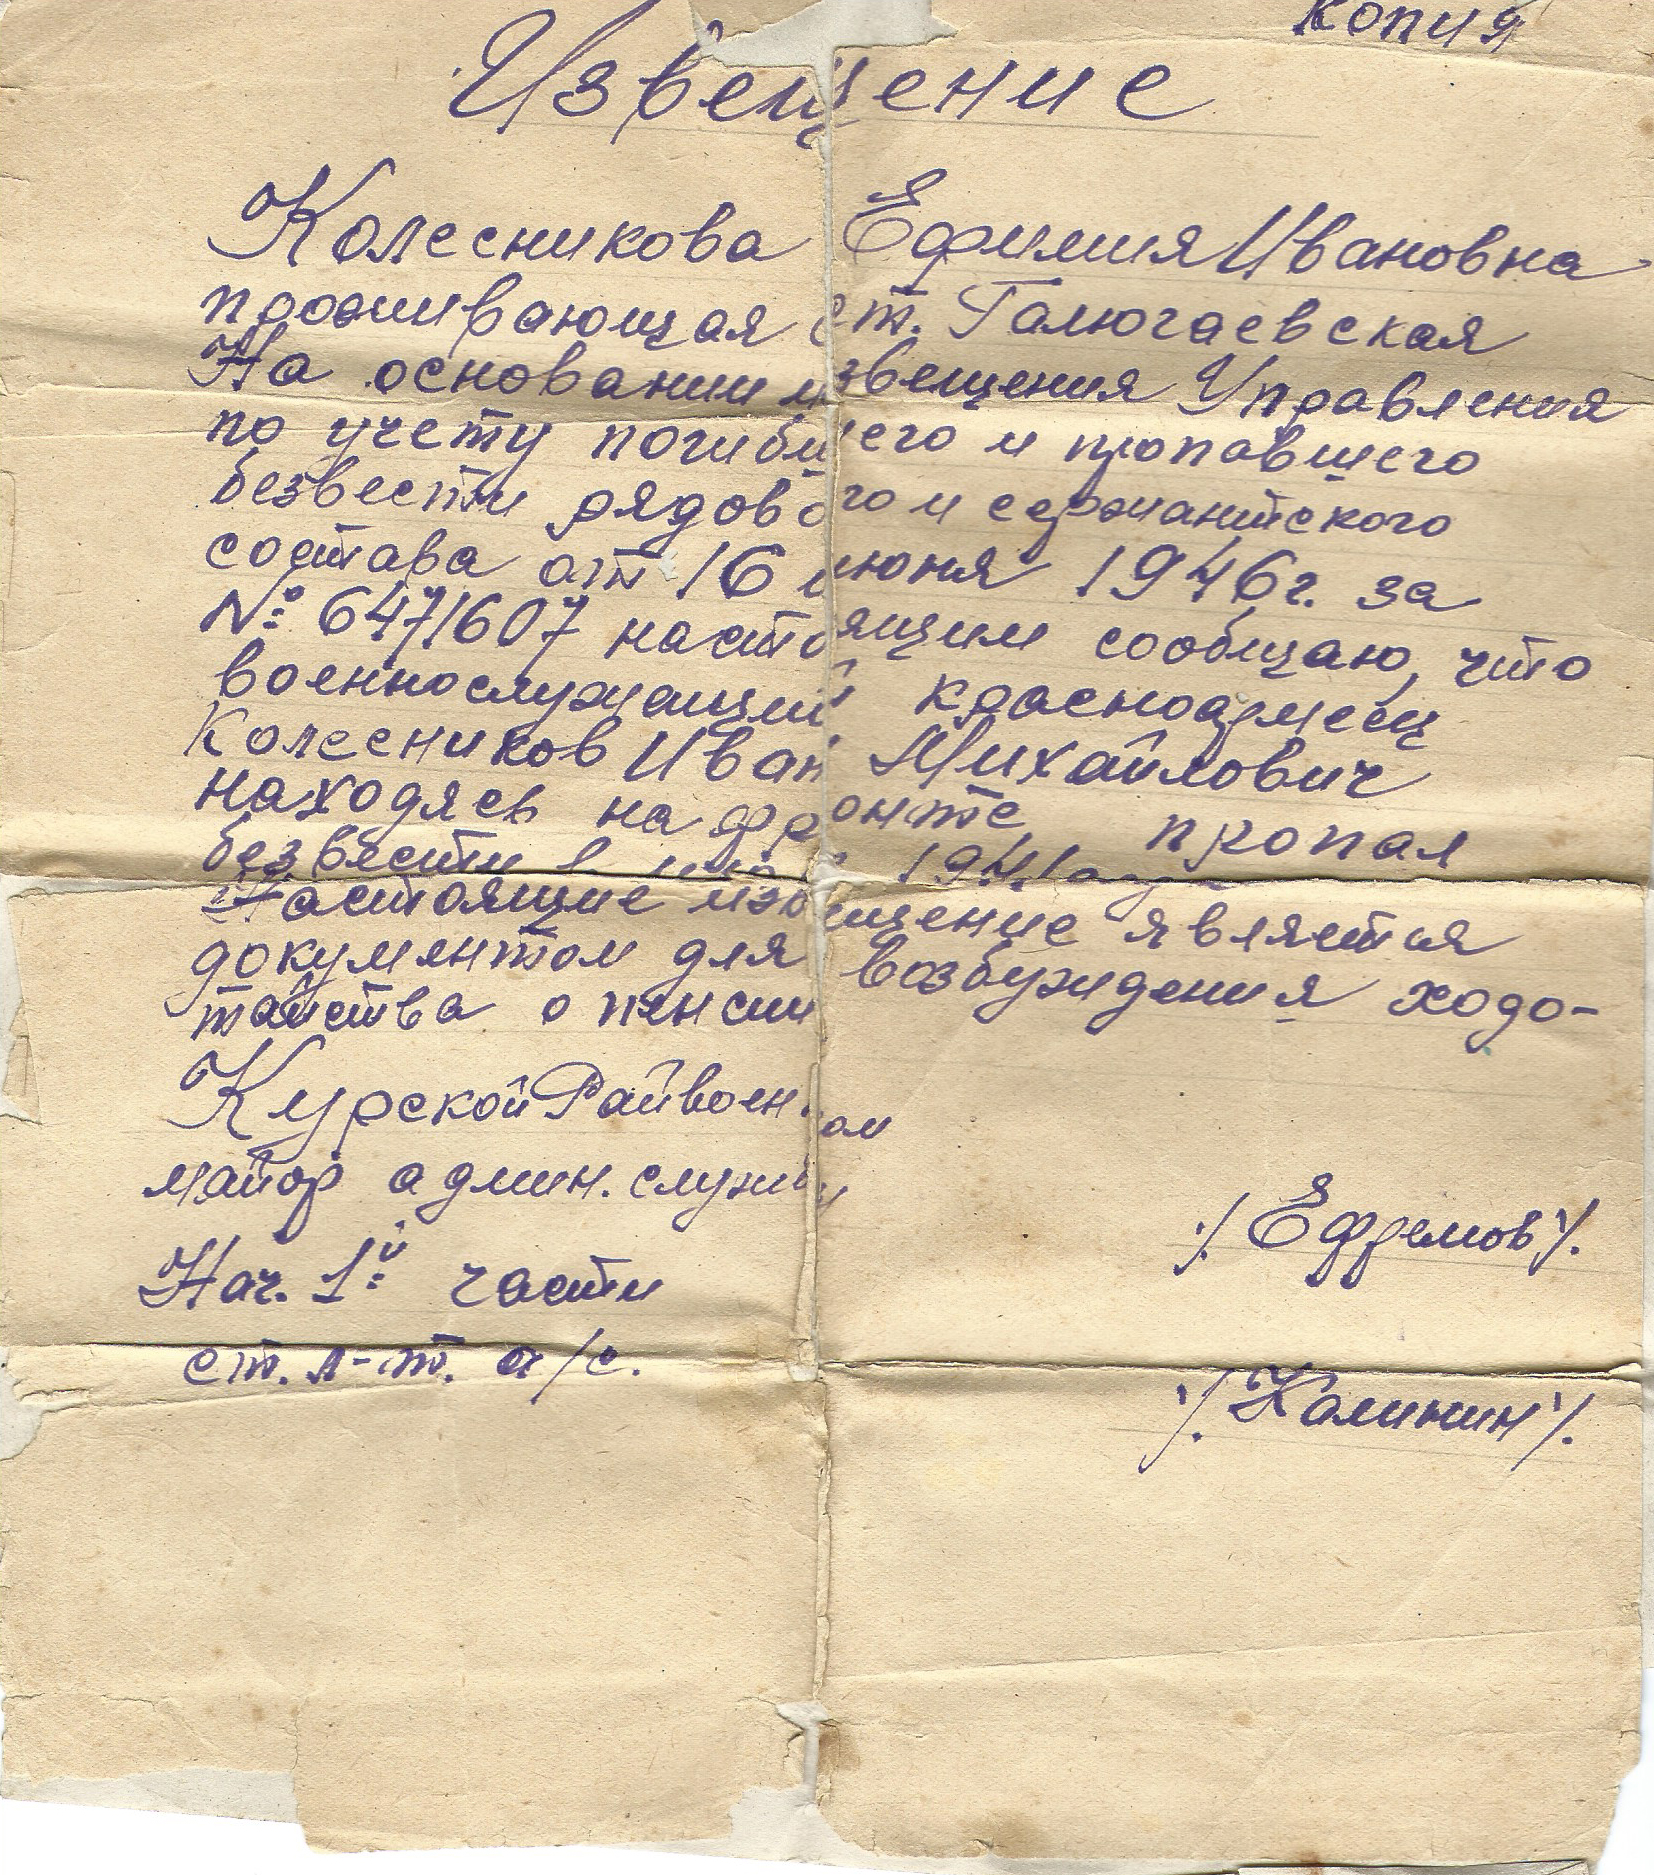 копия
Извещение
Колесникова Ефимия Ивановна
проживающая ст. Галюгаевская
На основании извещения Управления
по учету погибшего и пропавшего
безвести рядового и сержантского
состава от 16 июня 1946г. за
№ 647/607 настоящим сообщаю, что
военнослужащий красноармеец
Колесников Иван Михайлович
находясь на фронте пропал
безвести в 1941
Настоящие извещение является
документом для возбуждения ходо-
тайства о пенсии
Курской Райвоенком
майор админ. службы ./Ефремов/.
Нач. 1й части
ст. л-т. а/с. ./Калинин/.